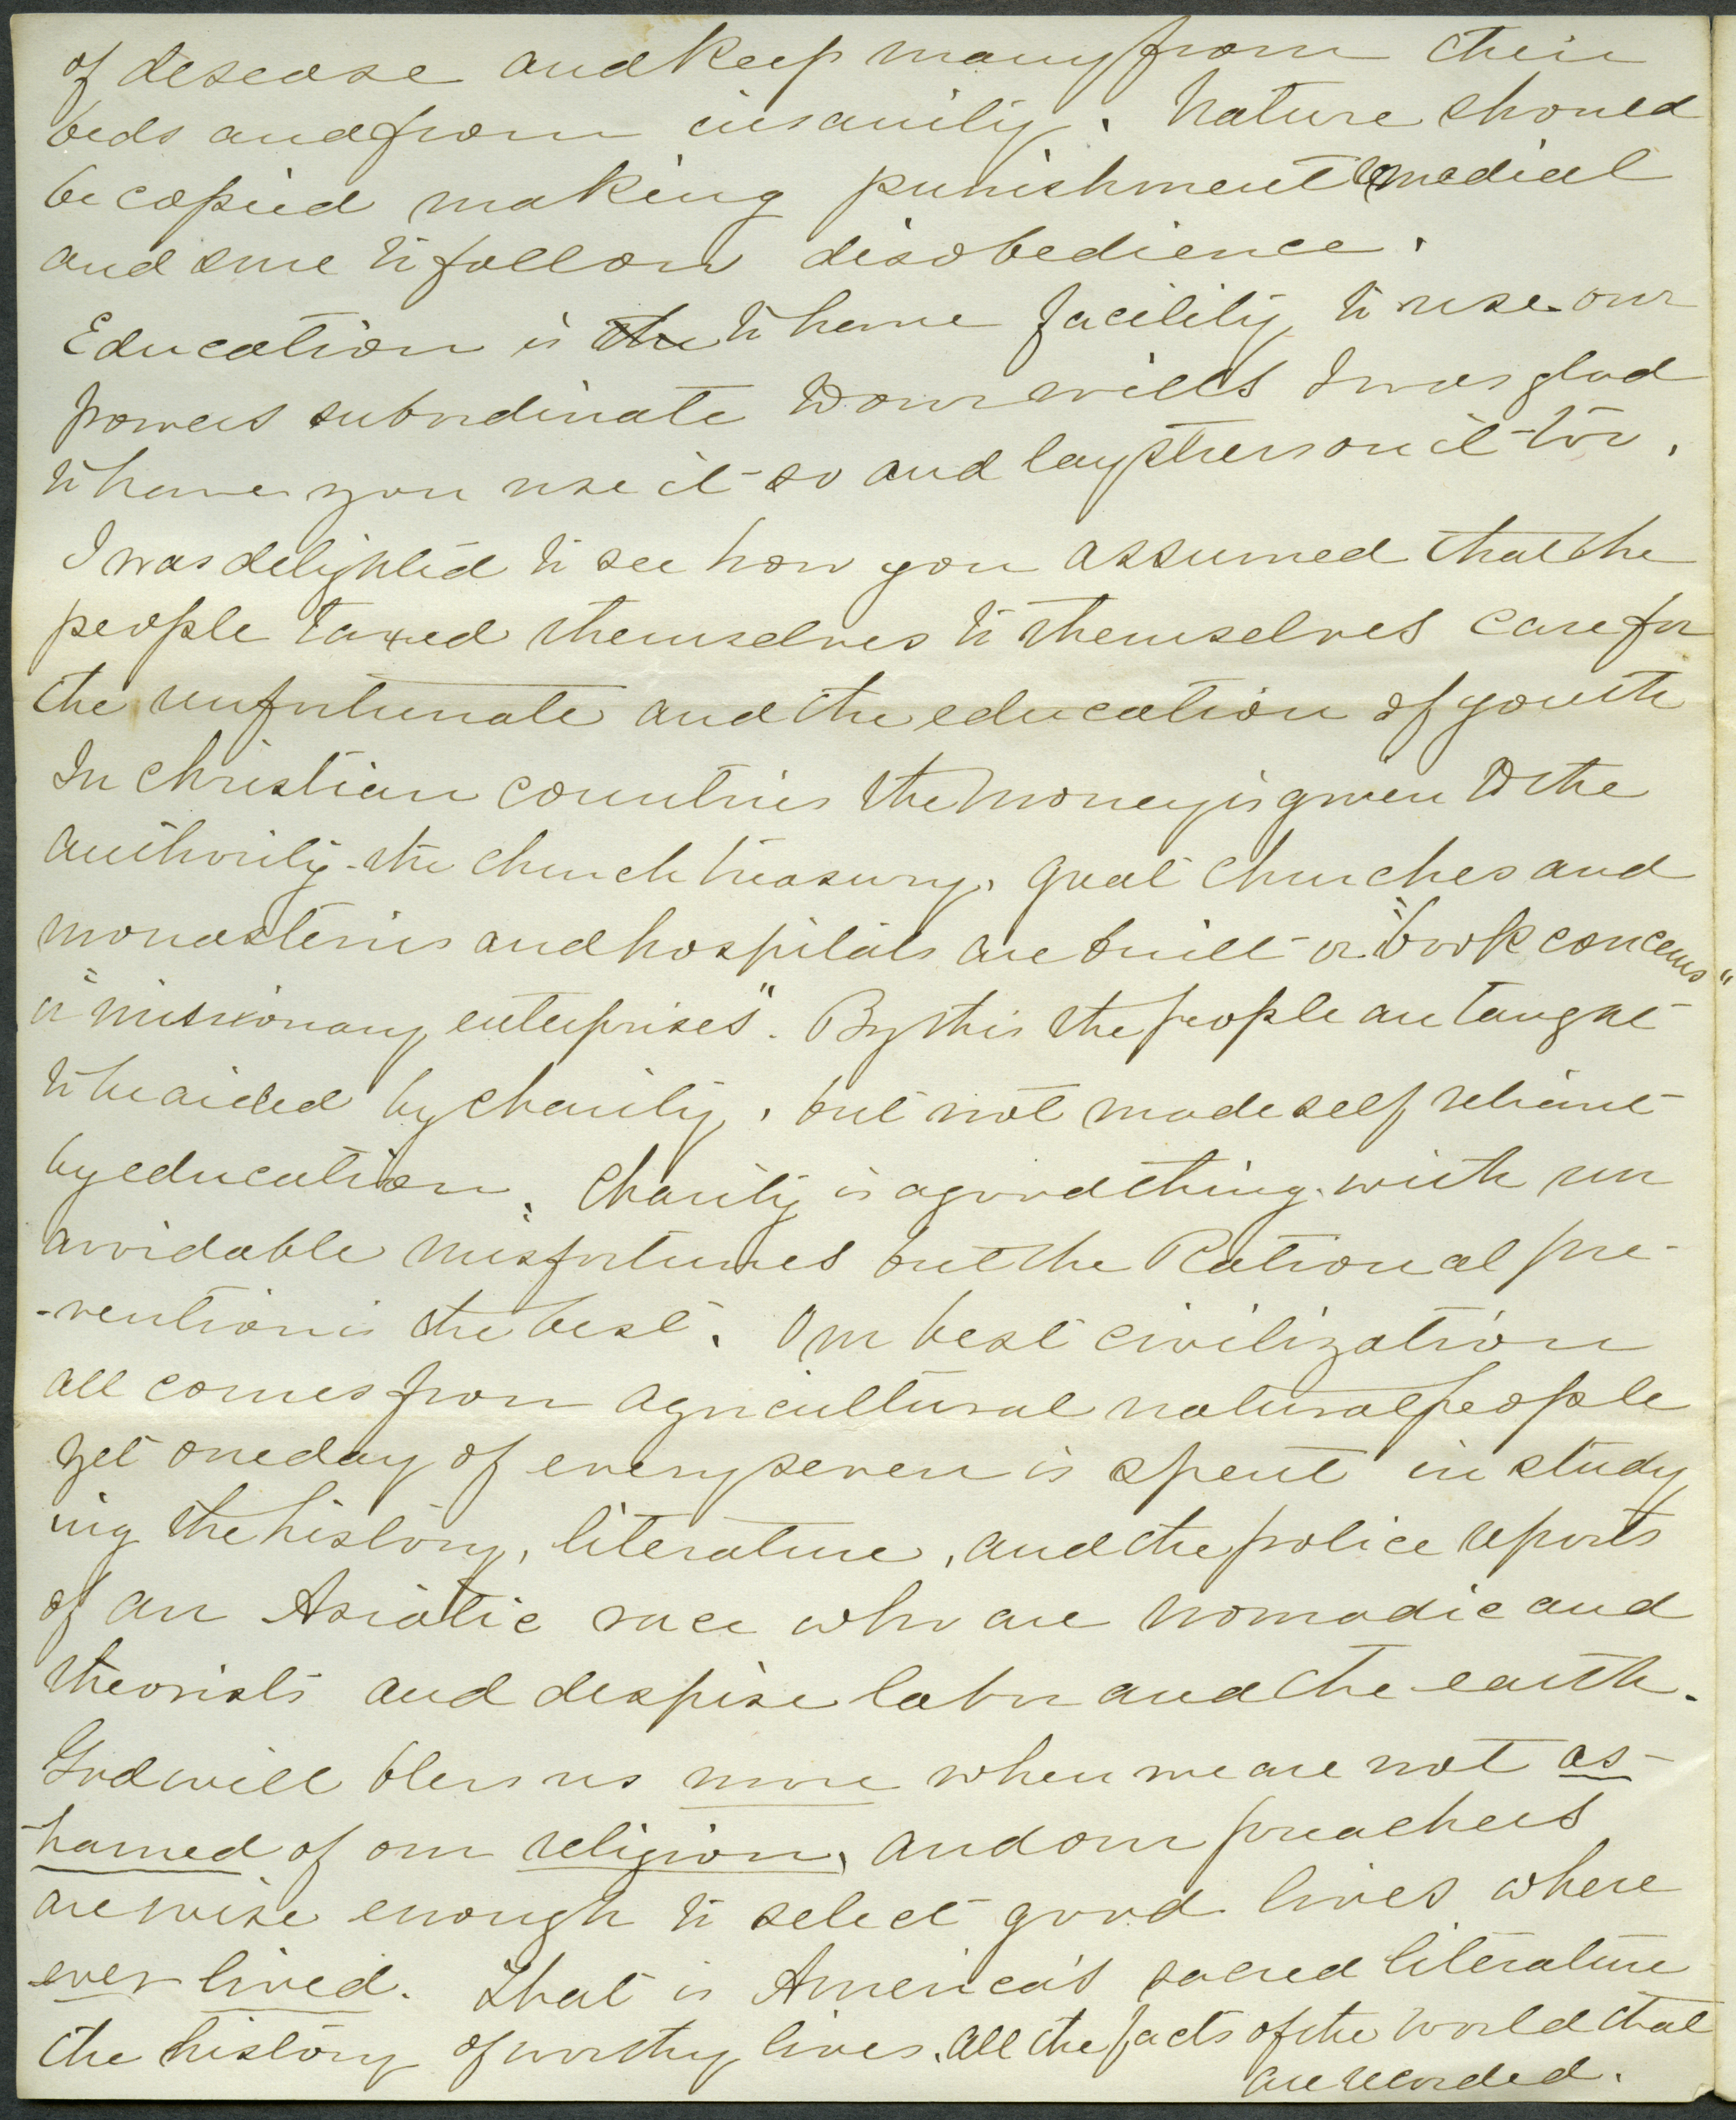 of desease and keep many from their
beds and from insanity. Nature should
be copied making punishment remedial
and sure to follow disobedience.
Education is the to have facility to use our
powers subordinate to our wills I was glad
to have you use it so and lay stress on it too.
I was delighted to see how you assumed that the
people taxed themselves to themselves care for
the unfortunate and the education of youth
In Christian countries the money is given to the
authority - the church treasury. great churches and
monasteries and hospitals are built or "book concerns"
or "missionary enterprises". By this the people are taught
to be aided by charity, but not made self reliant
by education. Charity is a good thing with un
avoidable misfortunes but the Rational pre-
-vention is the best. Our best civilization
all comes from agricultural natural people
yet one day of every seven is spent in study
ing the history, literature, and the police reports
of an Asiatic race who are nomadic and
theorists and despise labor and the earth.
God will bless us more when we are not as-
hamed of our religion, and our preachers
are wise enough to select good lives where
ever lived. That is America's sacred literature
the history of worthy lives. All the facts of the world that
are recorded.